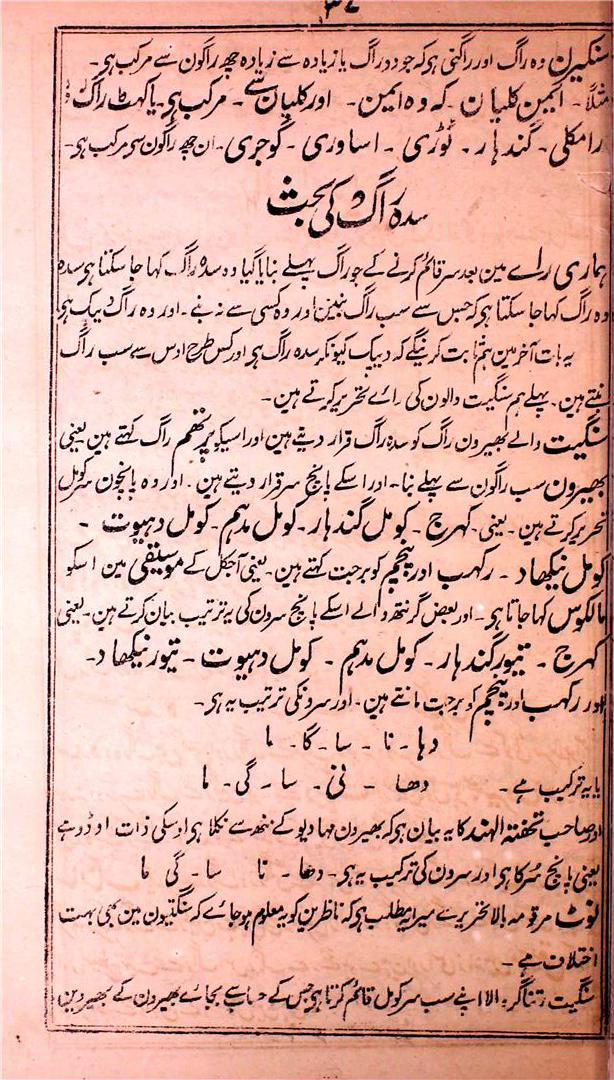 ۳۷
سنکیرن وہ راگ اور راگنی ہوکہ جو دو راگ یا زیادہ سے زیادہ چھ راگون سے مرکب ہو۔
مثلاً۔ ایمن کلیان کہ وہ ایمن۔ اور کلیان سے۔ مرکب ہو یا کہٹ راگ وہ
رامکلی۔ گندہار۔ ٹوڑی۔ اساوری۔ گوجری۔ ان چھ راگون سے مرکب ہو۔
سدہ راگ کی بحث
ہماری راے مین بعد سر قائم کرنے کے جو راگ پہلے بنایا گیا وہ سدہ راگ کہا جا سکتا ہو سدہ
وہ راگ کہا جا سکتا ہو کہ جس سے سب راگ بنین اور وہ کسی سے نہ بنے۔ اور وہ راگ دیپک ہو
یہ بات آخر مین ہم ثابت کرینگے کہ دیپک کیونکر سدہ راگ ہو اور کس طرح اوس سے سب راگ
بنتے ہین۔ پہلے ہم سنگیت والون کی راے تحریر کرتے ہین۔
سنگیت والے بھیرون راگ کو سدہ راگ قرار دیتے ہین اور اسیکو پرتھم راگ کہتے ہین یعنی
بھیرون سب راگون سے پہلے بنا۔ اور اسکے پانچ سر قرار دیتے ہین۔ اور وہ پانچون سر کومل
تحریر کرتے ہین۔ یعنی۔ کہرج۔ کومل گندہار۔ کومل مدہم۔ کومل دہیوت۔
کومل نیکھاد۔ رکھب اور پنچم کو برجت کہتے ہین۔ یعنی آجکل کے موسیقی مین اسکو
مالکوس کہا جاتا ہو۔ اور بعض گرنتھ والے اسکے پانچ سرون کی یہ ترتیب بیان کرتے ہین۔ یعنی
کہرج۔ تیور گندہار۔ کومل مدہم۔ کومل دہیوت۔ تیور نیکھاد۔
اور رکھب اور پنچم کو برجت مانتے ہین۔ اور سرونکی ترتیب یہ ہو۔
دہا۔ نا۔ سا۔ گا۔ ما
یا یہ ترکیب ہے۔ دھا۔ نی۔ سا۔ گی۔ ما
اور صاحب تحفتہ الہند کا یہ بیان ہو کہ بھیرون مہادیو کے منھ سے نکلا ہو اوسکی ذات اوڈو ہے
یعنی پانچ سُر کا ہو اور سرون کی ترکیب یہ ہو۔ دھا۔ نا سا۔ گی ما
نوٹ مرقومہ بالا تحریر سے میرا یہ مطلب ہو کہ ناظرین کو یہ معلوم ہو جائے کہ سنگیتون مین بھی بہت
اختلاف ہے۔
سنگیت رتناگر والا اپنے سب سر کومل قائم کرتا ہو جس کے حساب سے بجائے بھیرون کے بھیروین